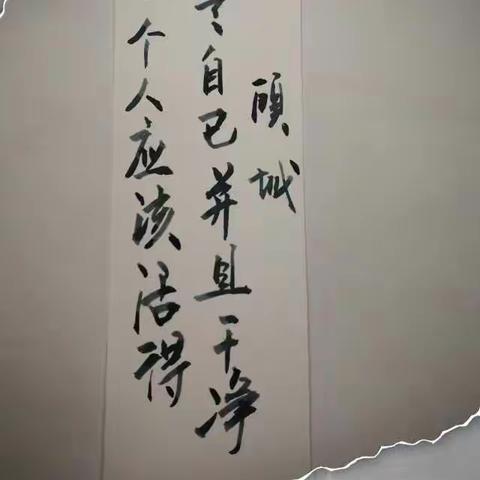 个人应该活得
自己并且干净
顾城